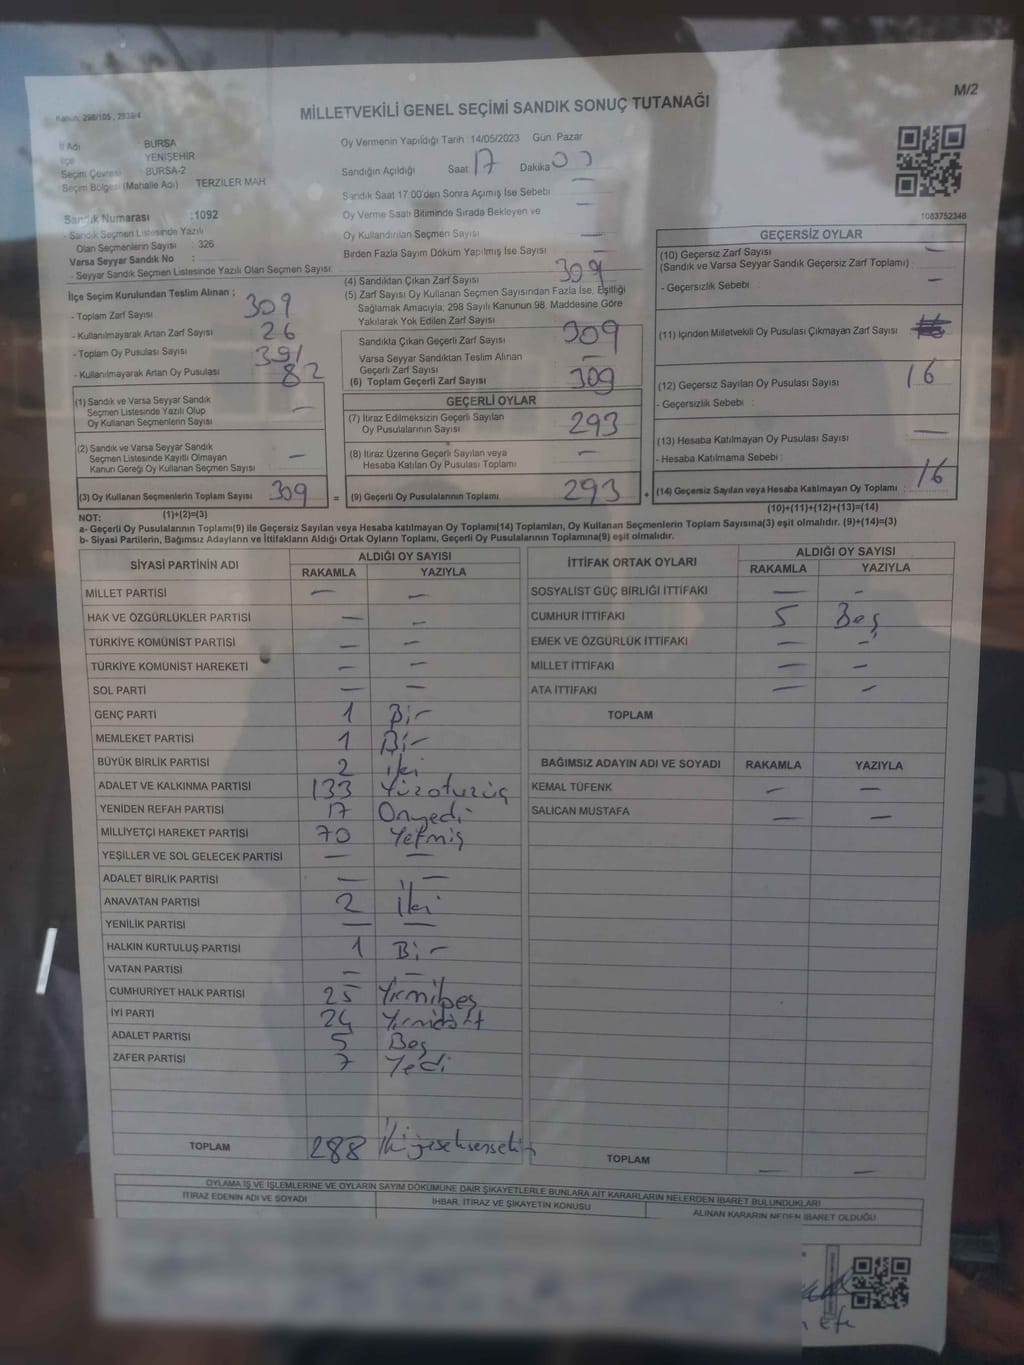 M/2
MİLLETVEKİLİ GENEL SEÇİMİ SANDIK SONUÇ TUTANAĞI
Kanun: 298/105 , 2839/4
İl Adı BURSA
İlçe YENİŞEHİR
Seçim Çevresi BURSA-2
Seçim Bölgesi (Mahalle Adı) TERZİLER MAH.
Oy Vermenin Yapıldığı Tarih :14/05/2023 Gün: Pazar
Sandığın Açıldığı Saat 17 Dakika 00
Sandık Saat 17:00'den Sonra Açılmış İse Sebebi —
Oy Verme Saati Bitiminde Sırada Bekleyen ve —
Oy Kullandırılan Seçmen Sayısı —
Birden Fazla Sayım Döküm Yapılmış İse Sayısı —
1083752346
Sandık Numarası :1092
- Sandık Seçmen Listesinde Yazılı
Olan Seçmenlerin Sayısı : 326
Varsa Seyyar Sandık No :
- Seyyar Sandık Seçmen Listesinde Yazılı Olan Seçmen Sayısı:
İlçe Seçim Kurulundan Teslim Alınan ;
- Toplam Zarf Sayısı 309
- Kullanılmayarak Artan Zarf Sayısı 26
- Toplam Oy Pusulası Sayısı 391
- Kullanılmayarak Artan Oy Pusulası 82
(1) Sandık ve Varsa Seyyar Sandık
Seçmen Listesinde Yazılı Olup
Oy Kullanan Seçmenlerin Sayısı —
(2) Sandık ve Varsa Seyyar Sandık
Seçmen Listesinde Kayıtlı Olmayan
Kanun Gereği Oy Kullanan Seçmen Sayısı —
(3) Oy Kullanan Seçmenlerin Toplam Sayısı 309 =
(1)+(2)=(3)
(4) Sandıktan Çıkan Zarf Sayısı 309
(5) Zarf Sayısı Oy Kullanan Seçmen Sayısından Fazla İse, Eşitliği
Sağlamak Amacıyla; 298 Sayılı Kanunun 98. Maddesine Göre
Yakılarak Yok Edilen Zarf Sayısı
Sandıkta Çıkan Geçerli Zarf Sayısı 309
Varsa Seyyar Sandıktan Teslim Alınan
Geçerli Zarf Sayısı —
(6) Toplam Geçerli Zarf Sayısı 309
GEÇERLİ OYLAR
(7) İtiraz Edilmeksizin Geçerli Sayılan
Oy Pusulalarının Sayısı 293
(8) İtiraz Üzerine Geçerli Sayılan veya
Hesaba Katılan Oy Pusulası Toplamı —
(9) Geçerli Oy Pusulalarının Toplamı 293 +
GEÇERSİZ OYLAR
(10) Geçersiz Zarf Sayısı —
(Sandık ve Varsa Seyyar Sandık Geçersiz Zarf Toplamı)
- Geçersizlik Sebebi : —
(11) İçinden Milletvekili Oy Pusulası Çıkmayan Zarf Sayısı
(12) Geçersiz Sayılan Oy Pusulası Sayısı 16
- Geçersizlik Sebebi :
(13) Hesaba Katılmayan Oy Pusulası Sayısı —
- Hesaba Katılmama Sebebi :
(14) Geçersiz Sayılan veya Hesaba Katılmayan Oy Toplamı : 16
(10)+(11)+(12)+(13)=(14)
NOT:
a- Geçerli Oy Pusulalarının Toplamı(9) ile Geçersiz Sayılan veya Hesaba katılmayan Oy Toplam(14) Toplamları, Oy Kullanan Seçmenlerin Toplam Sayısına(3) eşit olmalıdır. (9)+(14)=(3)
b- Siyasi Partilerin, Bağımsız Adayların ve İttifakların Aldığı Ortak Oyların Toplamı, Geçerli Oy Pusulalarının Toplamına(9) eşit olmalıdır.
SİYASİ PARTİNİN ADI ALDIĞI OY SAYISI
RAKAMLA YAZIYLA
MİLLET PARTİSİ — —
HAK VE ÖZGÜRLÜKLER PARTİSİ — —
TÜRKİYE KOMÜNİST PARTİSİ — —
TÜRKİYE KOMÜNİST HAREKETİ — —
SOL PARTİ — —
GENÇ PARTİ 1 Bir
MEMLEKET PARTİSİ 1 Bir
BÜYÜK BİRLİK PARTİSİ 2 iki
ADALET VE KALKINMA PARTİSİ 133 Yüzotuzüç
YENİDEN REFAH PARTİSİ 17 Onyedi
MİLLİYETÇİ HAREKET PARTİSİ 70 Yetmiş
YEŞİLLER VE SOL GELECEK PARTİSİ — —
ADALET BİRLİK PARTİSİ — —
ANAVATAN PARTİSİ 2 İki
YENİLİK PARTİSİ — —
HALKIN KURTULUŞ PARTİSİ 1 Bir
VATAN PARTİSİ — —
CUMHURİYET HALK PARTİSİ 25 Yirmibeş
İYİ PARTİ 24 Yirmidört
ADALET PARTİSİ 5 Beş
ZAFER PARTİSİ 7 Yedi
TOPLAM 288 İkiyüzseksensekiz
İTTİFAK ORTAK OYLARI ALDIĞI OY SAYISI
RAKAMLA YAZIYLA
SOSYALİST GÜÇ BİRLİĞİ İTTİFAKI — —
CUMHUR İTTİFAKI 5 Beş
EMEK VE ÖZGÜRLÜK İTTİFAKI — —
MİLLET İTTİFAKI — —
ATA İTTİFAKI — —
TOPLAM
BAĞIMSIZ ADAYIN ADI VE SOYADI RAKAMLA YAZIYLA
KEMAL TÜFENK — —
SALİCAN MUSTAFA — —
TOPLAM — —
OYLAMA İŞ VE İŞLEMLERİNE VE OYLARIN SAYIM DÖKÜMÜNE DAİR ŞİKAYETLERLE BUNLARA AİT KARARLARIN NELERDEN İBARET BULUNDUKLARI
İTİRAZ EDENİN ADI VE SOYADI İHBAR, İTİRAZ VE ŞİKAYETİN KONUSU ALINAN KARARIN NEDEN İBARET OLDUĞU